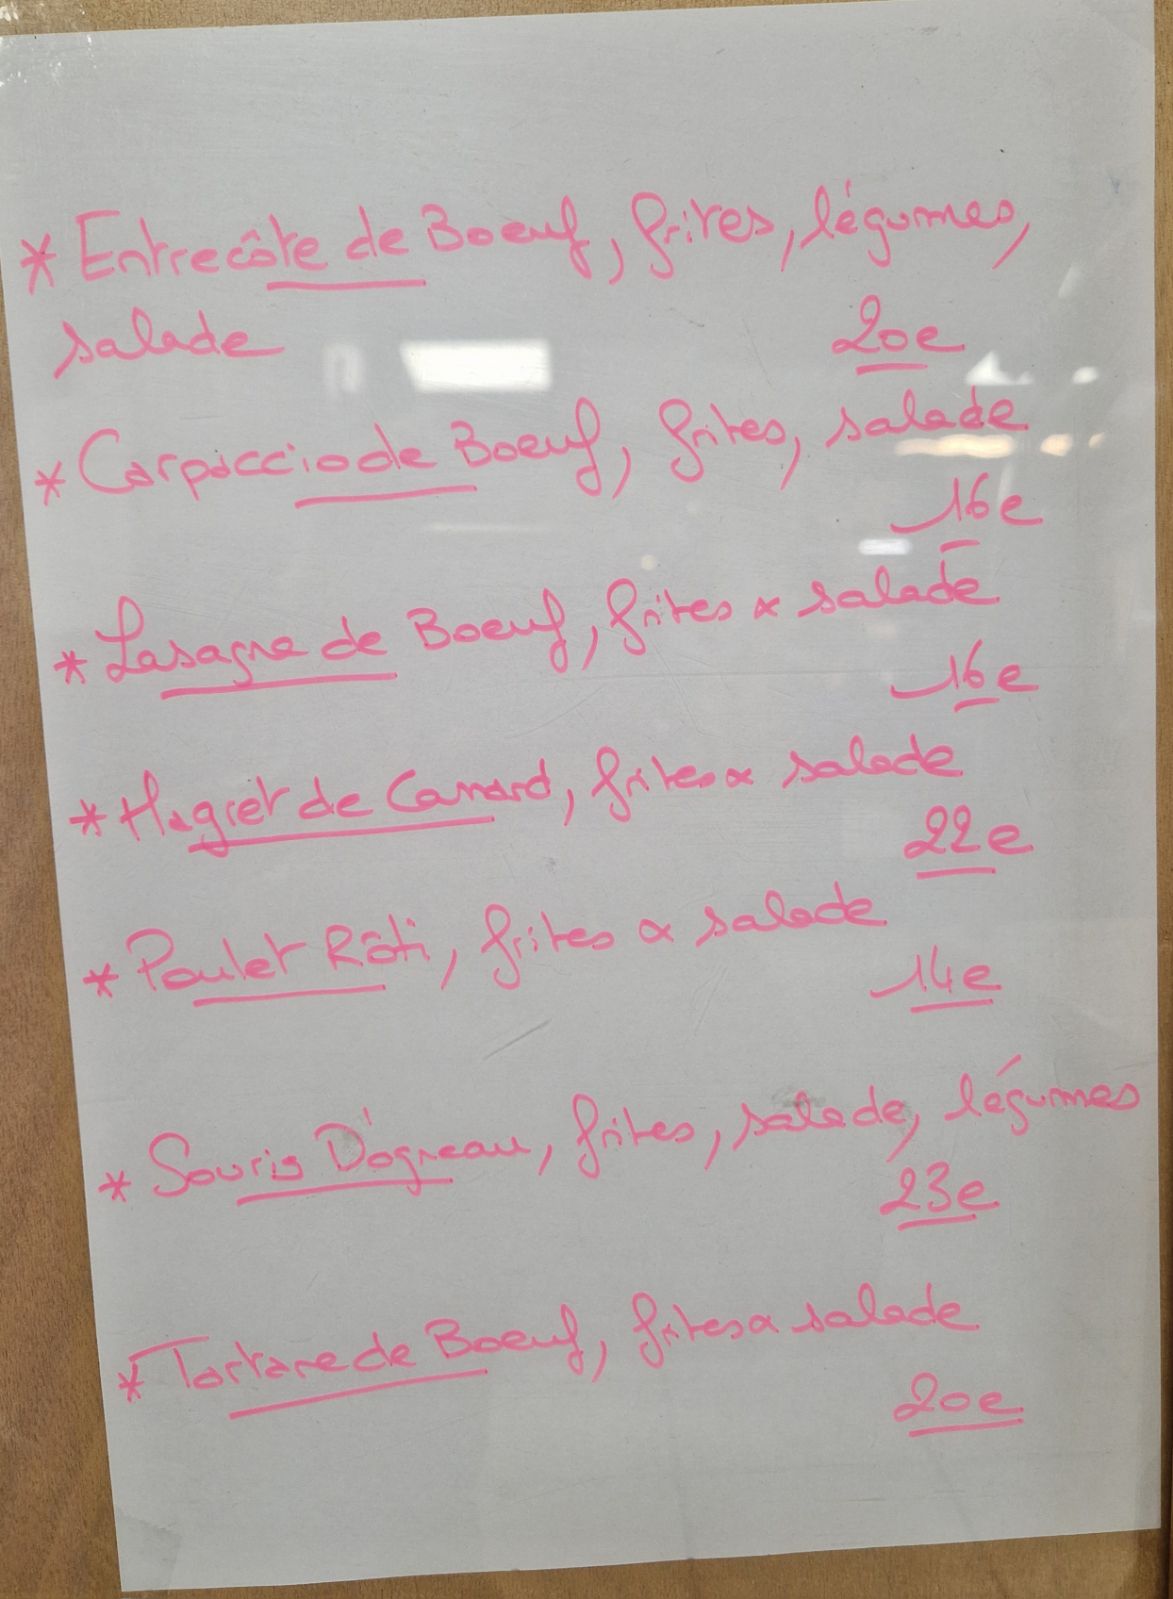 * Entrecôte de Boeuf, frites, légumes,
salade 20e
* Carpaccio de Boeuf, frites, salade
16e
* Lasagne de Boeuf, frites & salade
16e
* Magret de Canard, frites & salade
22e
* Poulet Rôti, frites & salade
14e
* Souris D'agneau, frites, salade, légumes
23e
* Tartare de Boeuf, frites & salade
20e